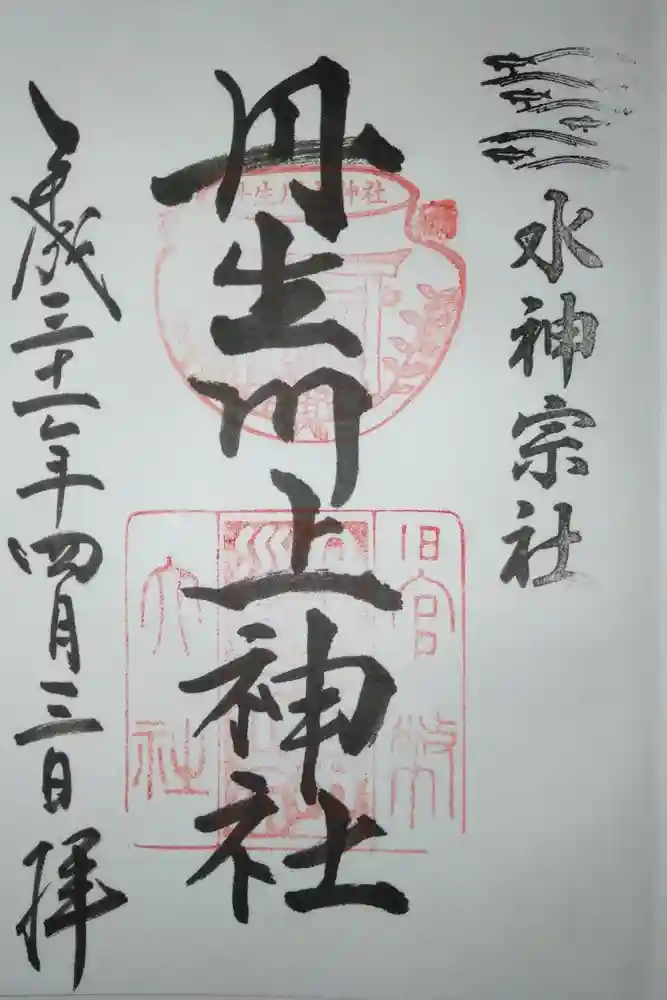 水神宗社
丹生川上神社
丹生川上神社
旧官幣
大社
平成三十一年四月三日拝